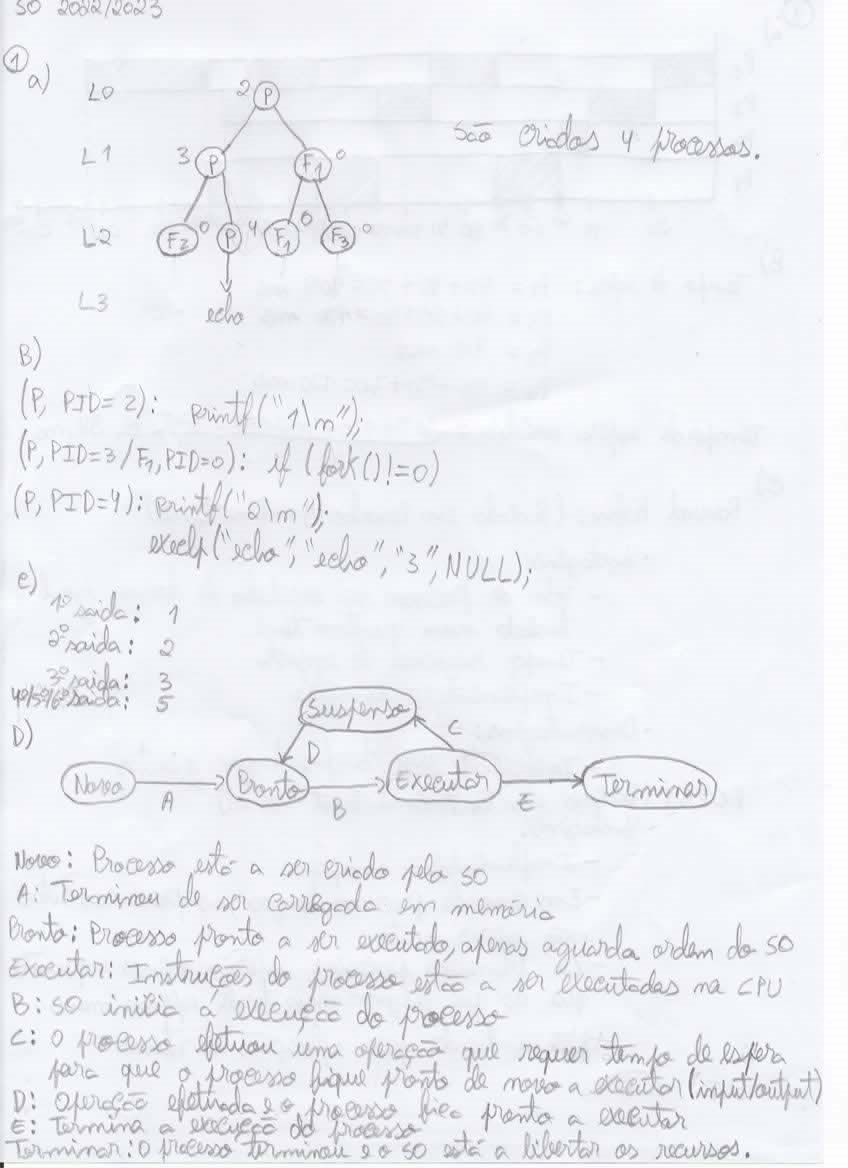 SO 2022/2023
① a)
L0 2 P
São criados 4 processos.
L1 3 P F1 0
L2 F2 0 P 4 F1 0 F3 0
L3 echo
B)
(P, PID=2): printf("1\n");
(P, PID=3/F1, PID=0): if (fork()!=0)
(P, PID=4): printf("2\n");
execlp("echo", "echo", "3", NULL);
c)
1º saida: 1
2º saida: 2
3º saida: 3
4º/5º/6º saida: 5
D)
Suspenso
D C
Novo Pronto Executar Terminar
A B E
Novo: Processo está a ser criado pelo SO
A: Terminou de ser carregada em memória
Pronto: Processo pronto a ser executado, apenas aguarda ordem do SO
Executar: Instruções do processo estão a ser executadas na CPU
B: SO inilia á execução do processo
C: O processo efetuou uma operação que requer tempo de espera
para que o processo fique pronto de novo a executar (input/output)
D: Operação efetuada e o processo fica pronto a executar
E: Termina a execução do processo
Terminar: O processo terminou e o SO está a libertar os recursos.